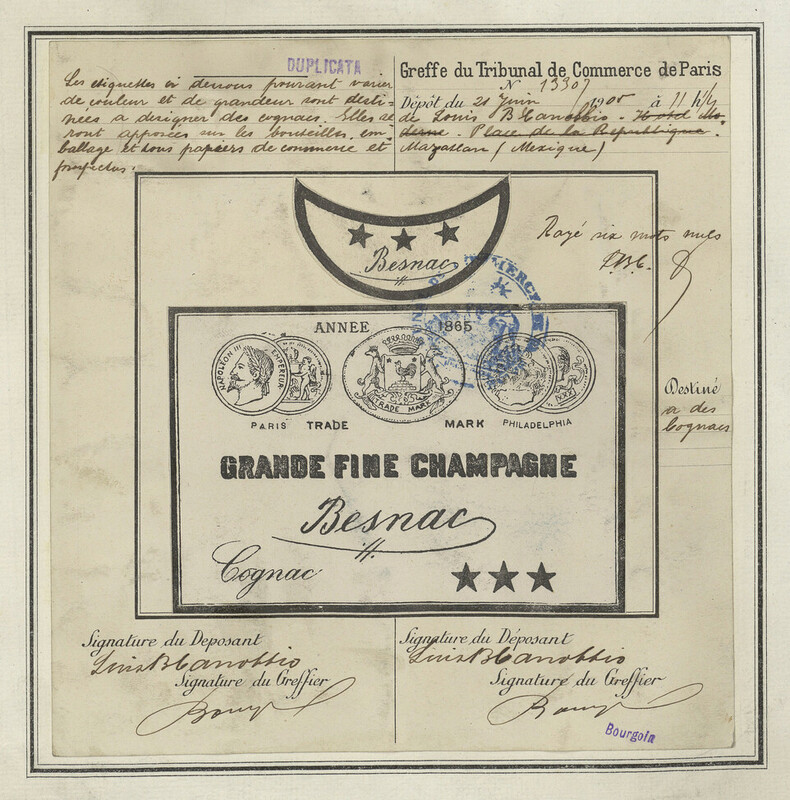 DUPLICATA
Les etiquettes ci dessous pouvant varier
de couleur et de grandeur sont desti-
nées a designer des cognacs. Elles se
ront apposées sur les bouteilles, em-
ballage et tous papiers de commerce et
prospectus.
Greffe du Tribunal de Commerce de Paris
N 13307
Dépôt du 21 Juin 1900 à 11 h 1/4
de Louis B Canobbio - Hotel Mo
derne - Place de la Republique.
Mazatlan (Mexique)
Rayé six mots nuls
LBC.
Besnac
ANNEE 1865
NAPOLEON III EMPEREUR
TRADE MARK
PARIS TRADE MARK PHILADELPHIA
GRANDE FINE CHAMPAGNE
Besnac
Cognac
Destiné
a des
Cognacs
Signature du Deposant
Luis B Canobbio
Signature du Greffier
Signature du Déposant
Luis B Canobbio
Signature du Greffier
Bourgoin